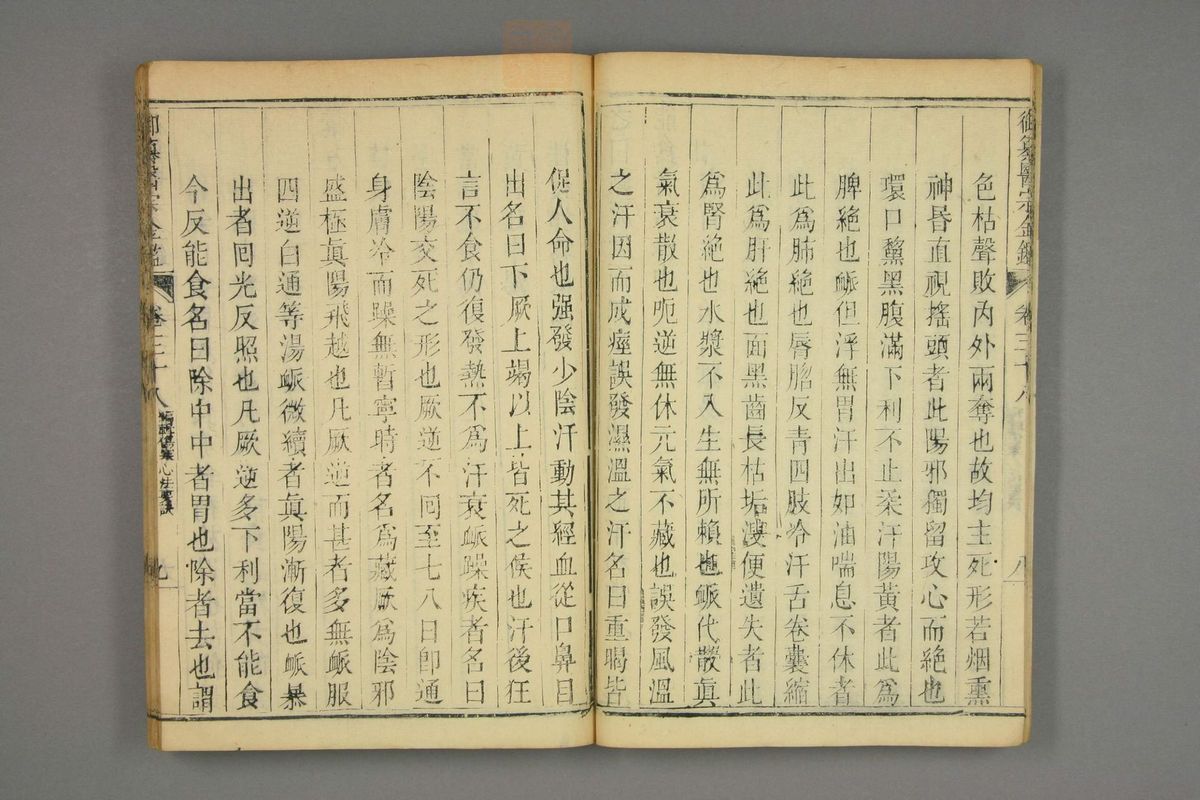 御纂醫宗金鑑 卷三十八 八
色枯聲敗內外兩奪也故均主死形若烟熏
神昬直視搖頭者此陽邪獨留攻心而絕也
環口黧黑腹滿下利不止柔汗陽黃者此爲
脾絕也脈但浮無胃汗出如油喘息不休者
此爲肺絕也唇脗反青四肢冷汗舌卷囊縮
此爲肝絕也面黑齒長枯垢溲便遺失者此
爲腎絕也水漿不入生無所賴也脈代散眞
氣衰散也呃逆無休元氣不藏也誤發風溫
之汗因而成痓誤發濕溫之汗名曰重暍皆
促人命也强發少陰汗動其經血從口鼻目
出名曰下厥上竭以上皆死之候也汗後狂
言不食仍復發熱不爲汗衰脈躁疾者名曰
陰陽交死之形也厥逆不回至七八日卽通
身膚冷而躁無暫寧時者名爲藏厥爲陰邪
盛極眞陽飛越也凡厥逆而甚者多無脈服
四逆白通等湯脈微續者眞陽漸復也脈暴
出者回光反照也凡厥逆多下利當不能食
今反能食名曰除中中者胃也除者去也謂
御纂醫宗金鑑 卷三十八 編輯傷寒心法要訣 九